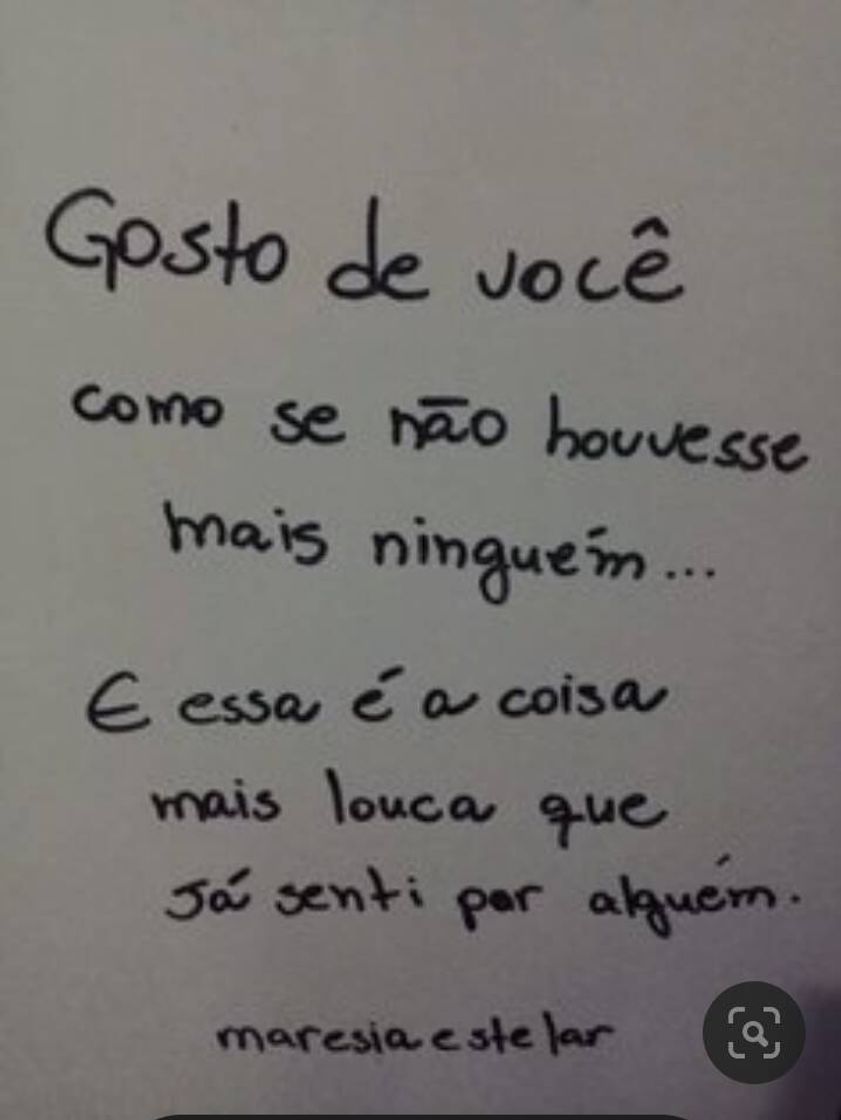 Gosto de você
como se não houvesse
mais ninguém...
E essa é a coisa
mais louca que
já senti por alguém.
maresia estelar